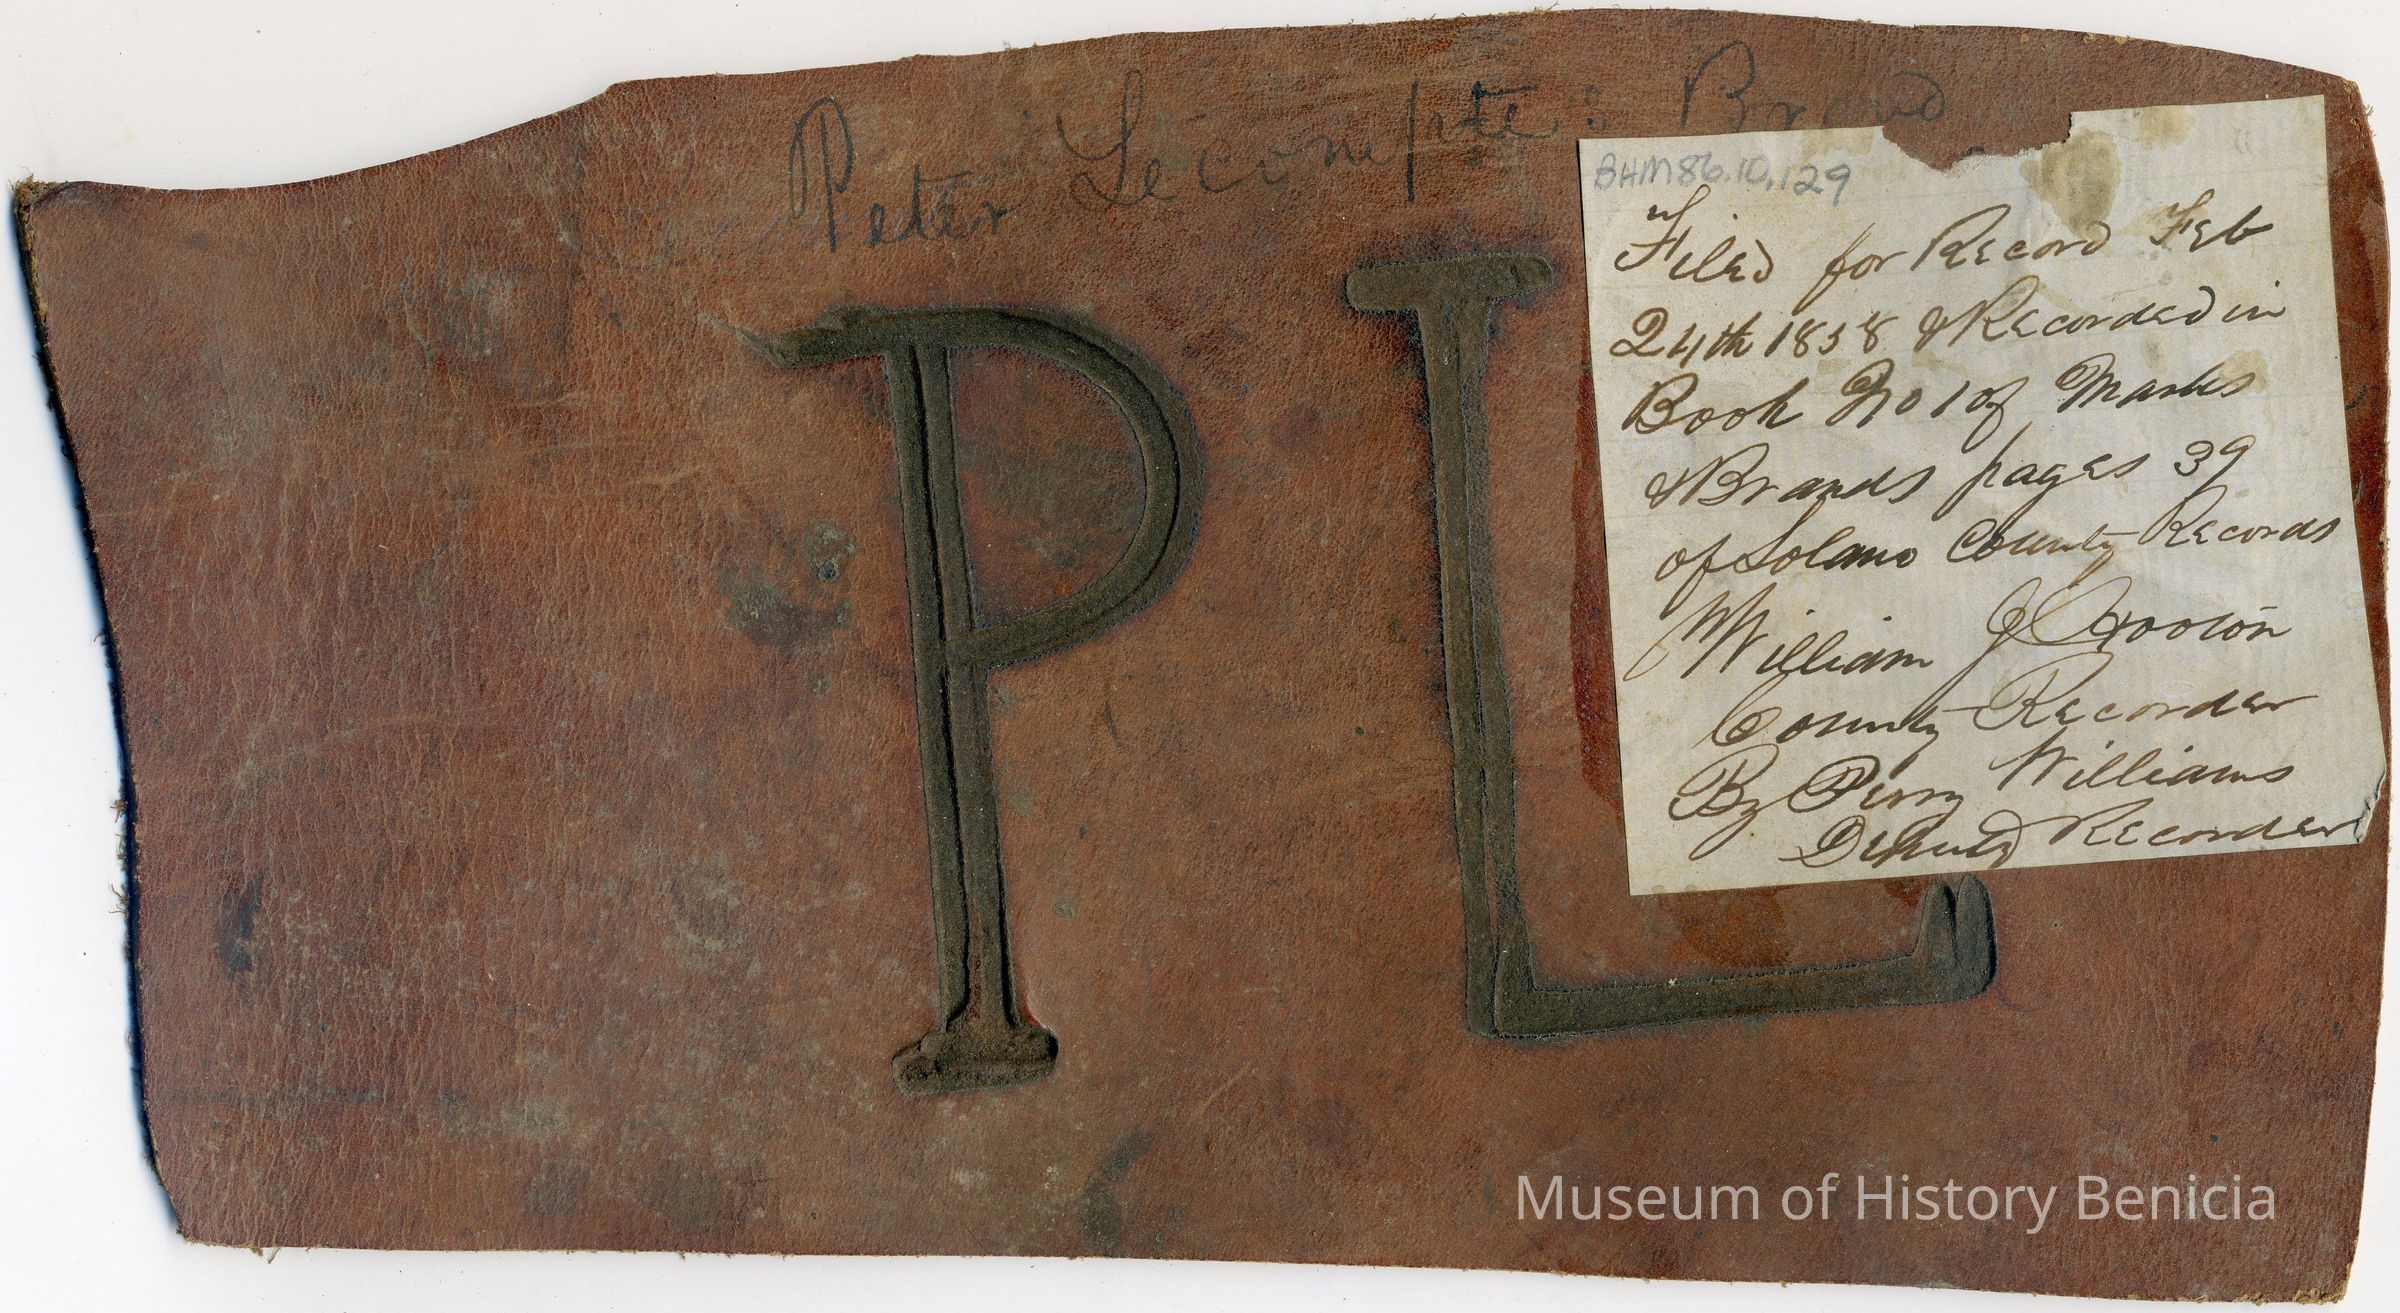 Peter Lecompte's Brand
P L
BHM86.10.129
Filed for Record Feb
24th 1858 & Recorded in
Book No 1 of Marks
& Brands pages 39
of Solano County Records
William J Hooton
County Recorder
By Perry Williams
Deputy Recorder
Museum of History Benicia